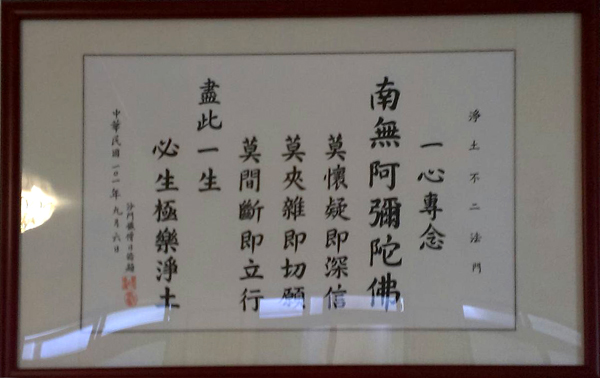 淨土不二法門
一心專念
南無阿彌陀佛
莫懷疑即深信
莫夾雜即切願
莫間斷即立行
盡此一生
必生極樂淨土
中華民國一〇一年九月六日